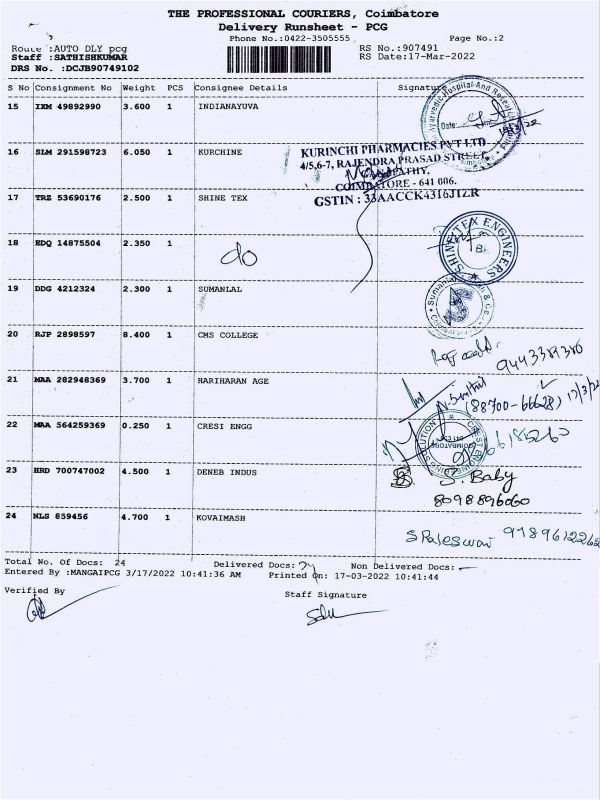 THE PROFESSIONAL COURIERS, Coimbatore
Delivery Runsheet - PCG
Phone No.:0422-3505555 Page No.:2
Route :AUTO DLY pcg RS No.:907491
Staff :SATHISHKUMAR RS Date:17-Mar-2022
DRS No. :DCJB90749102
S No Consignment No Weight PCS Consignee Details Signature
15 IXM 49892990 3.600 1 INDIANAYUVA
Date:
16 SLM 291598723 6.050 1 KURCHINE
KURINCHI PHARMACIES PVT LTD
4/5,6-7, RAJENDRA PRASAD STREET,
COIMBATORE - 641 006.
GSTIN : 33AACCK4316J1ZR
17 TRZ 53690176 2.500 1 SHINE TEX
18 EDQ 14875504 2.350 1 do
SHINE TEX ENGINEERS
19 DDG 4212324 2.300 1 SUMANLAL
20 RJP 2898597 8.400 1 CMS COLLEGE
9443389380
21 MAA 282948369 3.700 1 HARIHARAN AGE
(88700-66628) 17/3/22
22 MAA 564259369 0.250 1 CRESI ENGG
COIMBATORE
23 HRD 700747002 4.500 1 DENEB INDUS
S. Baby
8098896060
24 NLS 859456 4.700 1 KOVAIMASH
S Rajeswari 9789612262
Total No. Of Docs: 24 Delivered Docs: 24 Non Delivered Docs: -
Entered By :MANGAIPCG 3/17/2022 10:41:36 AM Printed On: 17-03-2022 10:41:44
Verified By
Staff Signature